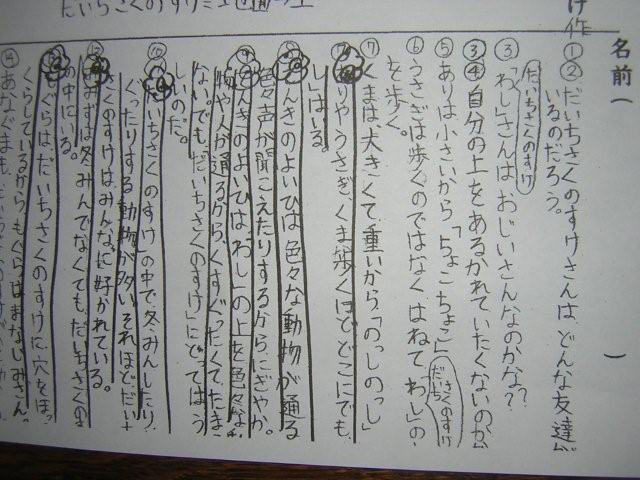 名前（　　）
け作
①②だいちさくのすけさんは、どんな友達が
いるのだろう。
だいちさくのすけ
③「わし」さんはおじいさんなのかな？
③④自分の上をあるかれていたくないのかな？
⑤ありは小さいから「ちょこちょこ」
だいちさくのすけ
⑥うさぎは歩くのではなくはねて「わし」の
を歩く。
⑦くまは、大きくて重いから「のっしのっし」
りやうさぎ、くま歩くほどどこにでも、
し」はいる。
んきのよいひは色々な動物が通る
色々声が聞こえたりするから、にぎやか。
んきのよいひは「わし」の上を色々な
物や人が通るから、くすぐったくてたま
ない。でも、だいちさくのすけ」にとってはう
しいのだ。
⑩だいちさくのすけの中で冬みんしたり、
ぐったりする動物が多い。それほどだいち
くのすけはみんなに好かれている。
みずは冬みんでなくても、だいちさくの
の中にいる。
もぐらはだいちさくのすけに穴をほっ
くらしているからもぐらはおなじみさん。
⑭あなぐまも、